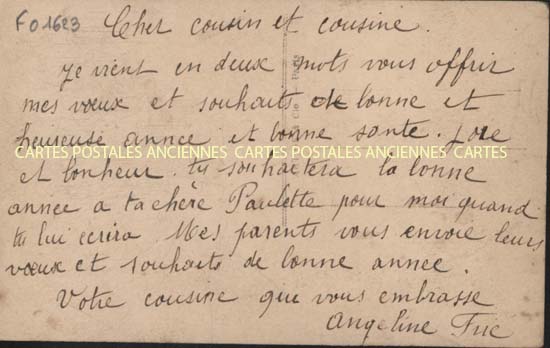 FO1623
Cher cousin et cousine.
je vient en deux mots vous offrir
mes vœux et souhaits de bonne et
heureuse annee et bonne sante. Joie
CARTES POSTALES ANCIENNES CARTES POSTALES ANCIENNES CARTES
et bonheur. tu souhaitera la bonne
annee a ta chère Paulette pour moi quand
tu lui ecrira. Mes parents vous envoie leurs
vœux et souhaits de bonne annee.
Votre cousine que vous embrasse
Angeline